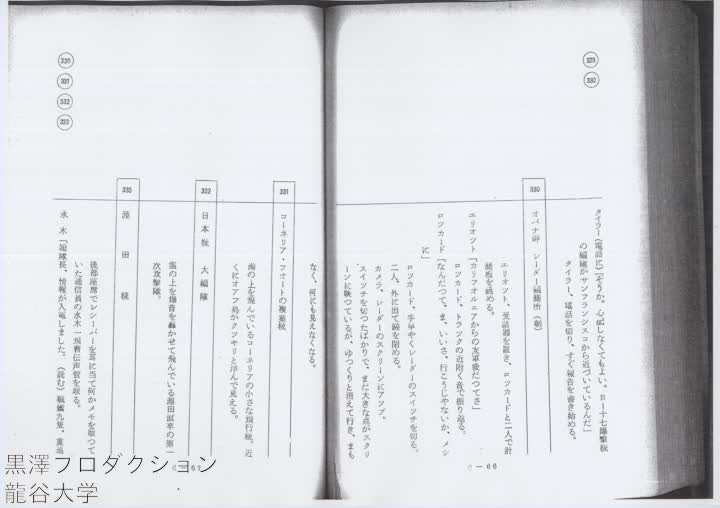 329
330
タイラー（電話に）「そうか。心配しなくてもよい。B－十七爆撃機
の編隊がサンフランシスコから近づいているんだ」
タイラー、電話を切り、すぐ報告を書き始める。
330
オパナ岬 レーダー観測所（朝）
エリオット、受話器を置き、ロツカードと二人で計
器板を眺める。
エリオツト「カリフオルニアからの友軍機だつてさ」
ロツカード、トラツクの近附く音で振り返る。
ロツカード「なんだつて、ま、いいさ、行こうじやないか、メシ
に」
ロツカード、手早やくレーダーのスイツチを切る。
二人、外に出て錠を閉める。
カメラ、レーダーのスクリーンにアツプ。
スイツチを切つたばかりで、まだ大きな点がスクリ
ーンに映つているが、ゆつくりと消えて行き、まも
6－66
330
331
332
333
なく、何にも見えなくなる。
331
コーネリア・フオートの複葉機
海の上を飛んでいるコーネリアの小さな飛行機。近
くにオアフ島がクツキリと浮んで見える。
332
日本機 大編隊
雲の上を爆音を轟かせて飛んでいる淵田麾下の第一
次攻撃隊。
333
淵田機
後部座席でレシーバーを耳に当て何かメモを取つて
いた通信員の水木一飛曹伝声管を取る。
水木「総隊長、情報が入電しました。（読む）戦艦九隻、重巡
黒澤プロダクション
龍谷大学